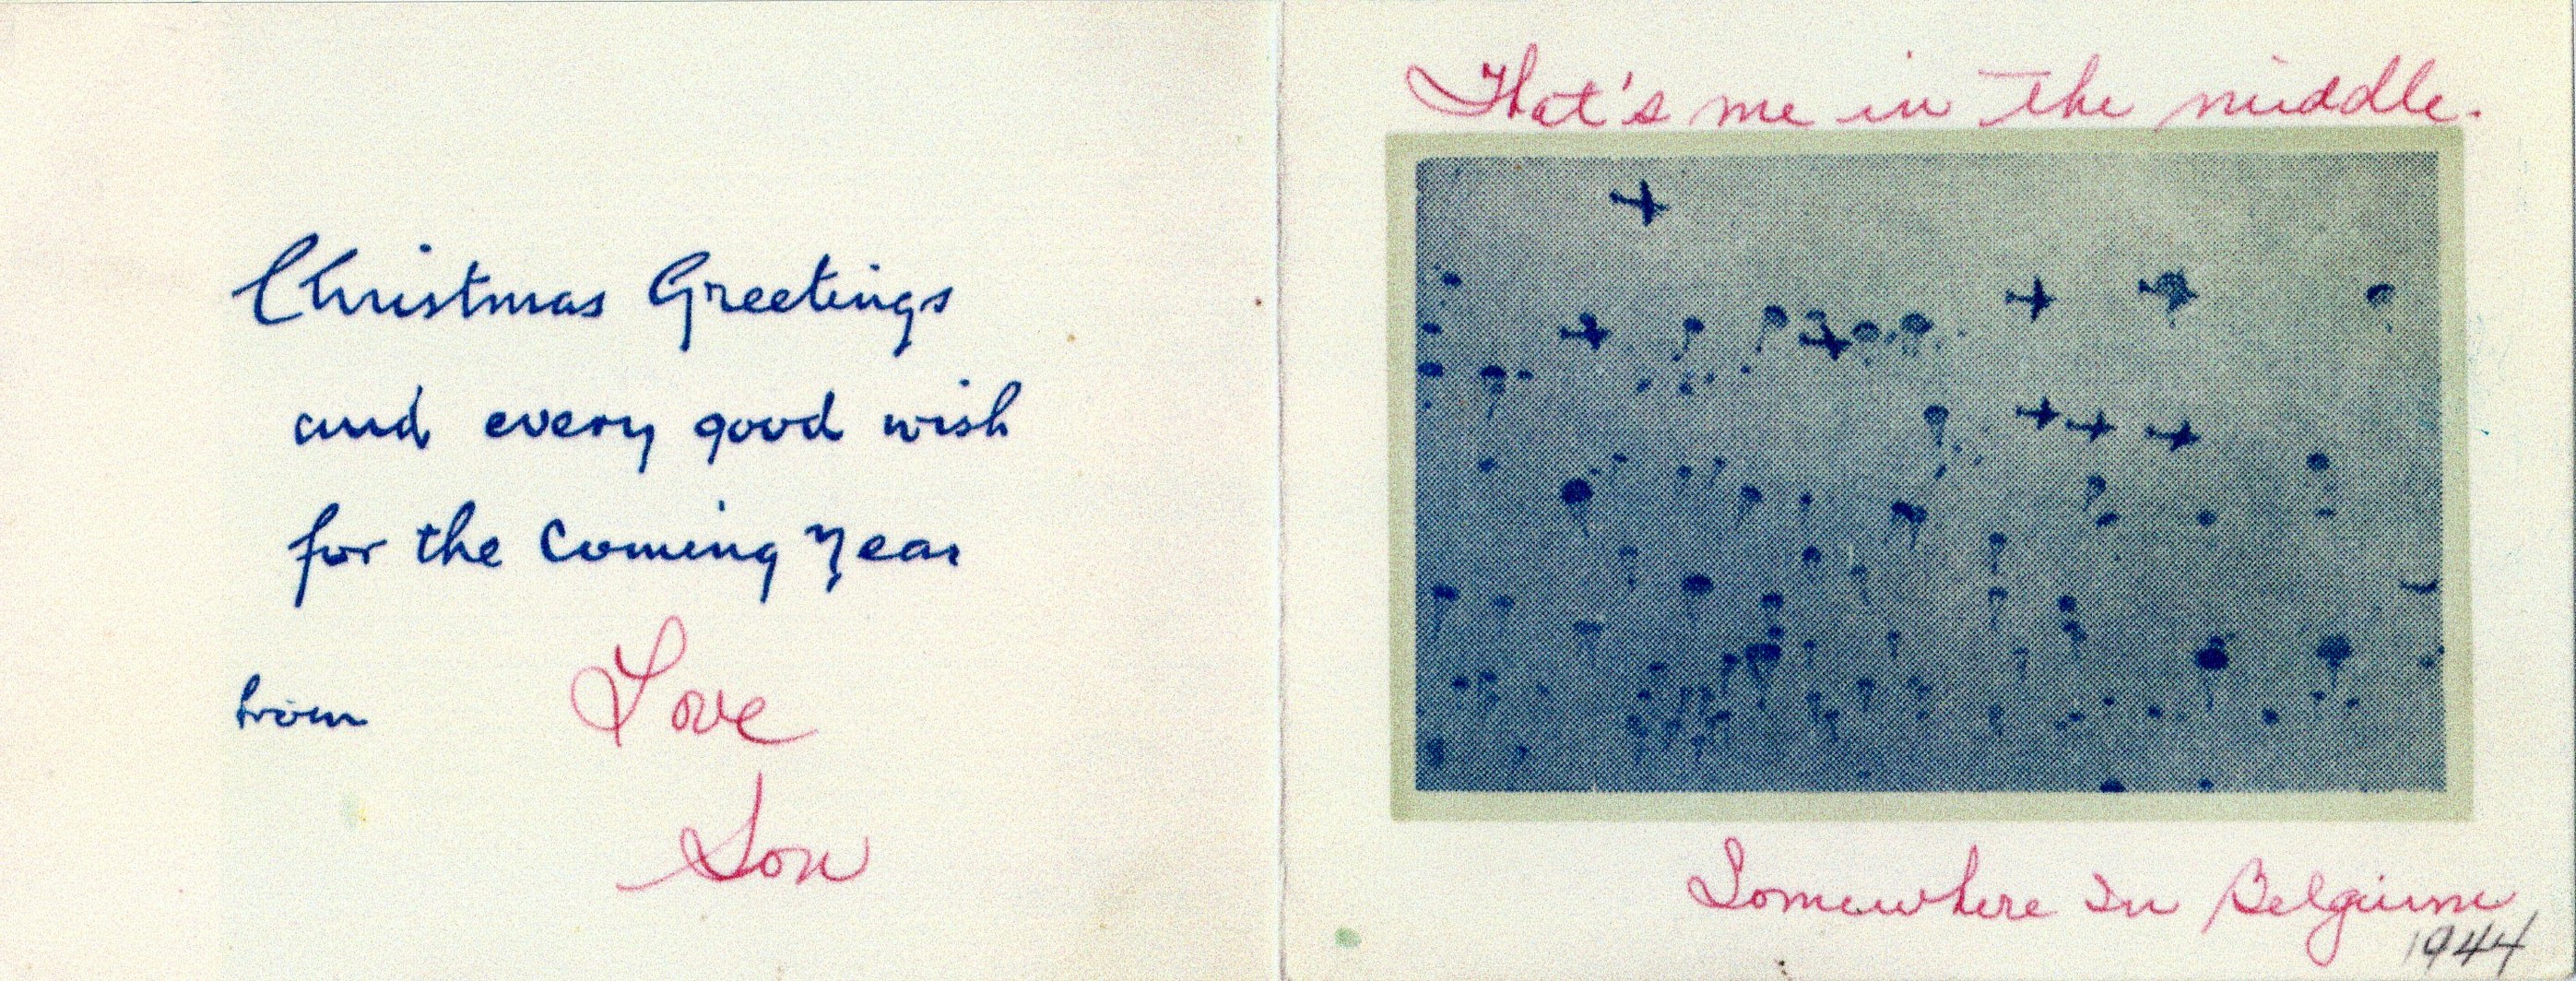 Christmas Greetings
and every good wish
for the Coming Year
from Love
Son
That's me in the middle.
Somewhere In Belgium
1944